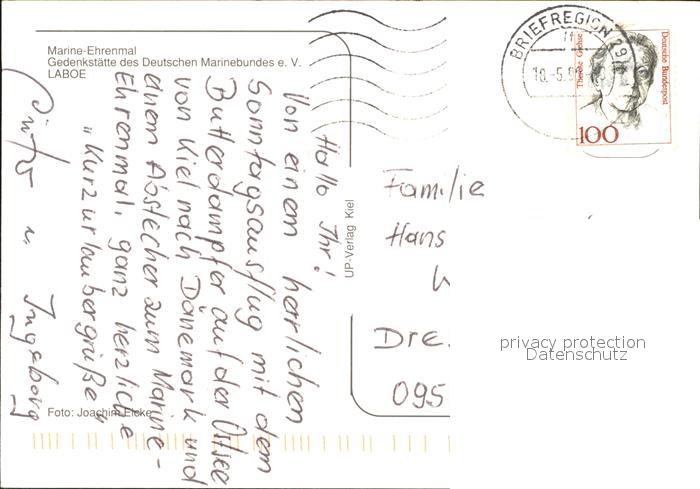 Marine-Ehrenmal
Gedenkstätte des Deutschen Marinebundes e. V.
LABOE
Hallo Ihr!
Von einem herrlichen
Sonntagsausflug mit dem
Butterdampfer auf der Ostsee
von Kiel nach Dänemark und
einem Abstecher zum Marine-
Ehrenmal, ganz herzliche
"Kurzurlaubergrüße"
u. Ingeborg
Foto: Joachim Eicke
UP-Verlag Kiel
BRIEFREGION 29
Therese Giehse
Deutsche Bundespost
100
Familie
Hans
Dre
095
privacy protection
Datenschutz